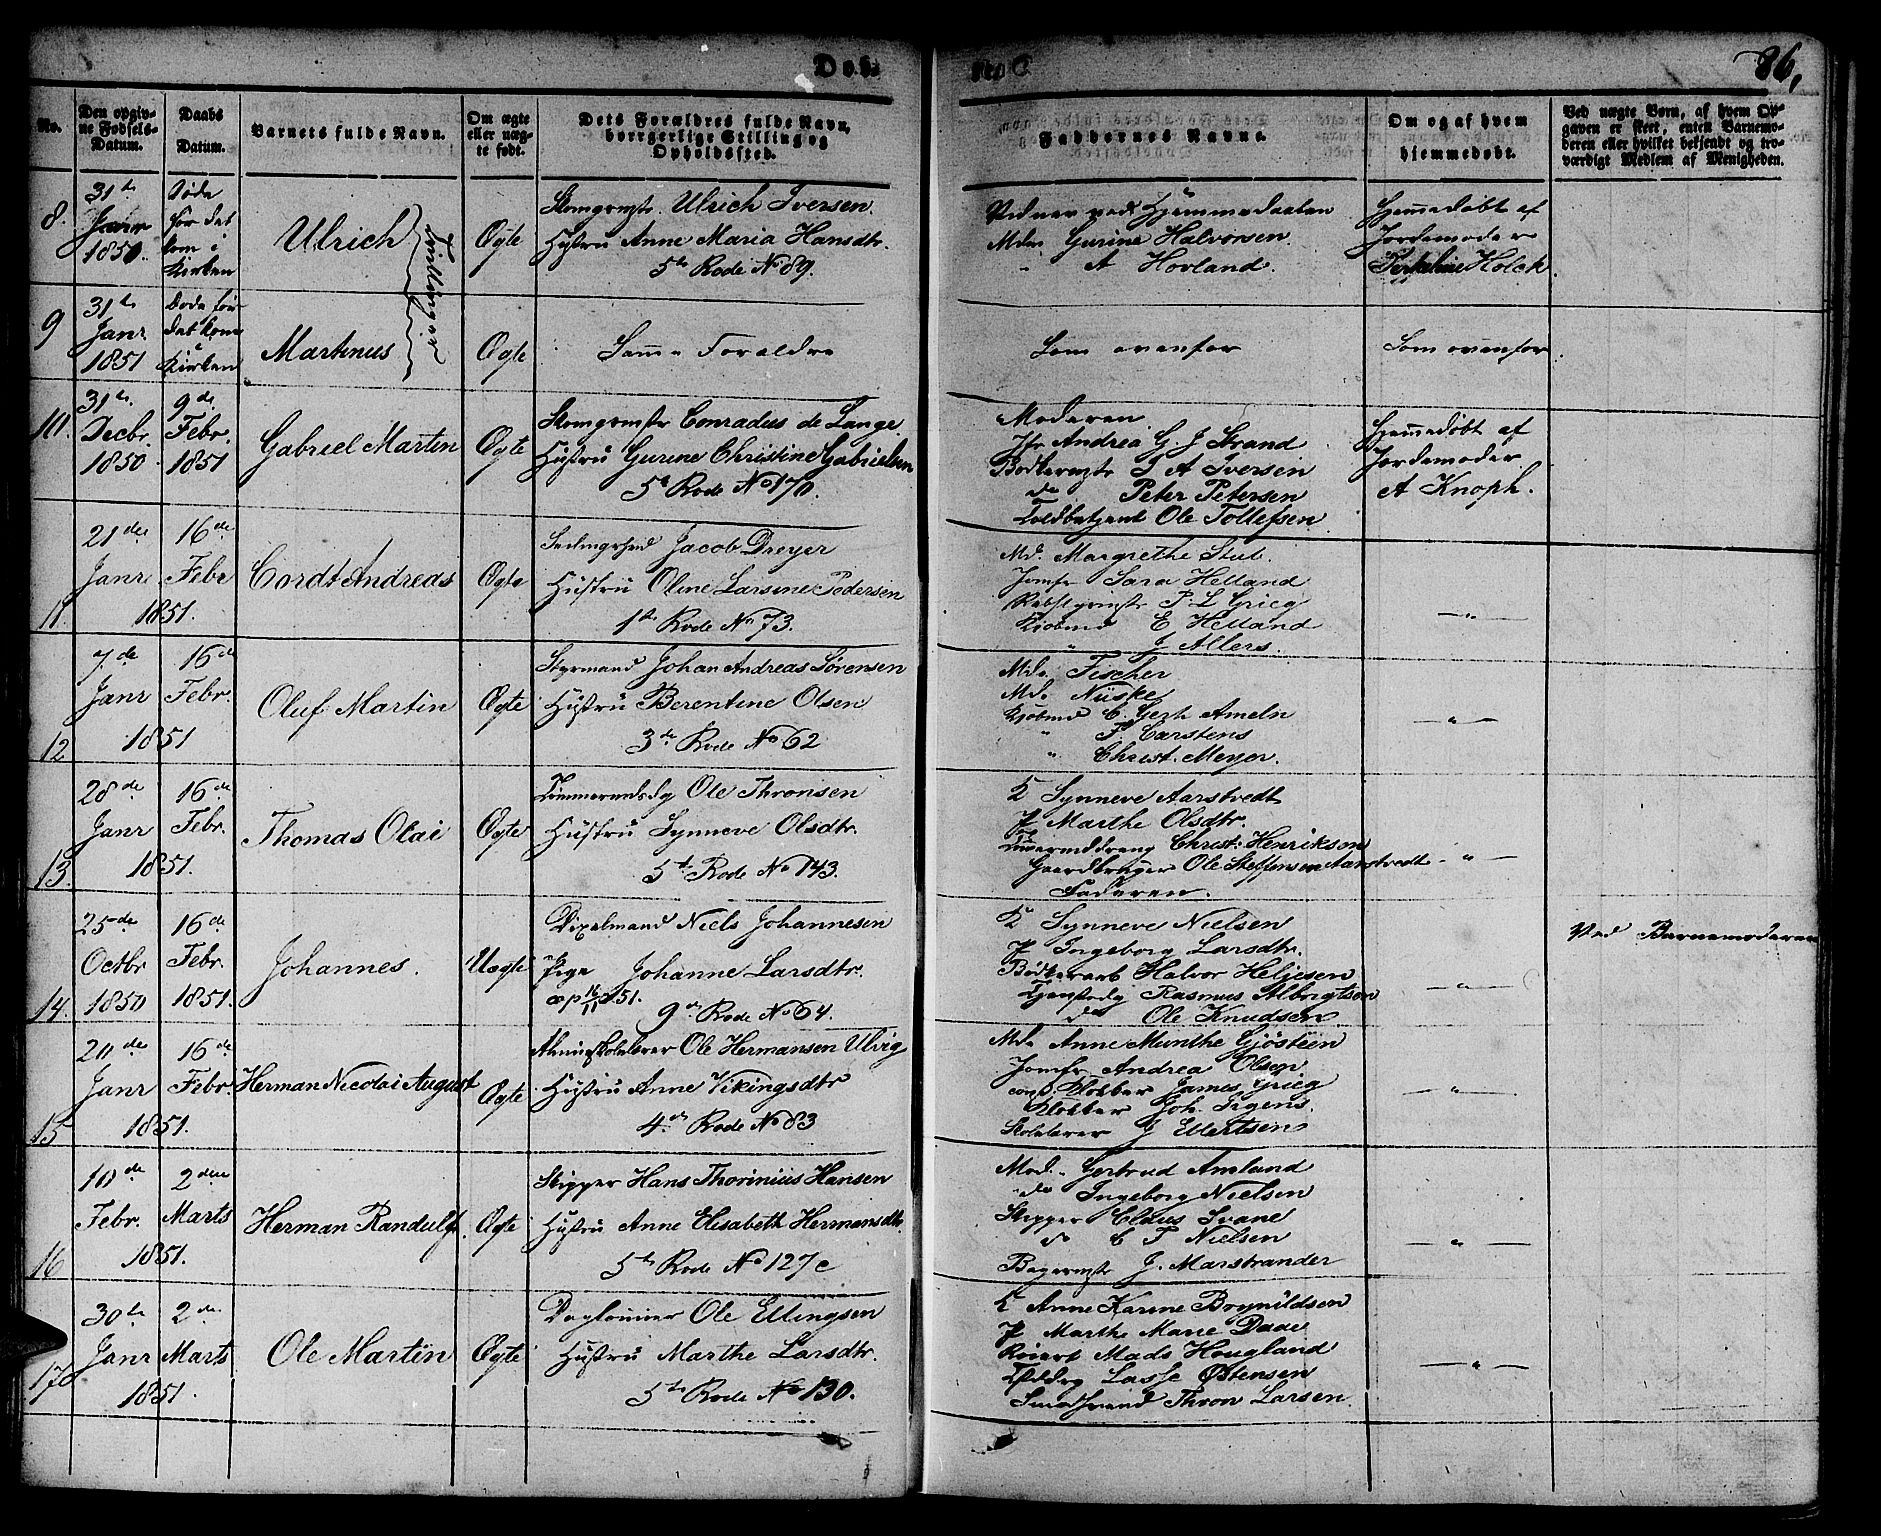 Døb
86,
No.
Den opgiv-
ne Fødsels-
Datum.
Daabs
Datum.
Barnets fulde Navn.
Om ægte
eller uæg-
te født.
Dets Forældres fulde Navn,
borgerlige Stilling og
Opholdssted.
Faddernes Navne.
Om og af hvem
hjemmedøbt.
Ved uægte Børn, af hvem Op-
gaven er skeet, enten Barnemo-
deren eller hvilket bekjendt og tro-
værdigt Medlem af Menigheden.
8.
31te
Janr
1850.
Døde
før det
kom i
Kirken
Ulrich
Tvillinger
Ægte
Skomgrmstr. Ulrich Iversen.
Hustru Anne Maria Hansdtr.
5te Rode No 89.
Vidner ved Hjemmedaaben
Mde Gurine Halvorsen
" A Hovland.
Hjemmedøbt af
Jordemoder
Holck.
9
31te
Janr
1851
Døde før
det kom
i
Kirken
Martinus
Ægte
Samme Forældre
Som ovenfor
Som ovenfor
10.
31te
Decbr.
1850.
9de
Febr.
1851
Gabriel Martin
Ægte
Skomgrmstr Conradus de Lange
Hustru Gurine Christine Gabrielsen
5te Rode No 170.
Moderen
Jfr Andrea G. J Strand
Bødkermstr I A Iversen
do Peter Petersen
Toldbetjent Ole Tollefsen
Hjemmedøbt af
Jordemoder
A Knoph.
11.
21de
Janr
16de
Febr
1851.
Cordt Andreas
Ægte
Jacob Dreyer
Hustru Oline Larsine Pedersen
1ste Rode No 73.
Md. Margrethe Stub.
Jomfr Sara Helland
Rebslgrmstr P. L Grieg
Kjøbmd E Helland
" J Allers.
— " —
12
7de
Janr
16de
Febr.
1851
Oluf Martin
Ægte
Styrmand Johan Andreas Sørensen
Hustru Berentine Olsen
3die Rode No 62
Mde. Fischer
Md. Niiske
Kjøbmd C. Gerh Ameln
" F. Carstens
" Christ. Meyer.
— " —
13.
28de
Janr
16de
Febr.
1851.
Thomas Olai
Ægte
Ole Thronsen
Hustru Synneve Olsdtr.
5te Rode No 143.
K Synneve Aarstvedt
P Marthe Olsdtr.
Christ: Henriksen
Gaardbruger Ole Steffensen Aarstvedt
Faderen.
- " —
14.
25de
Octbr
1850
16de
Febr.
1851.
Johannes.
Uægte
Niels Johannesen
og
Pige Johanne Larsdtr.
9de Rode No 64.
K Synneve Nielsen
P Ingeborg Larsdtr.
Bødkerarb Halvor Heljesen
Rasmus Albrigtsen
do Ole Knudsen
— " —
Ved Barnemoderen
15
20de
Janr
16de
Febr.
1851.
Herman Nicolai August
Ægte
Almueskolelærer Ole Hermansen Ulvig
Hustru Anne Vikingsdtr
4de Rode No 83
Mde Anne Munthe Gjøsteen
Jomfr Andrea Olsen
const. Klokker James Grieg
Klokker Joh. Irgens.
Skolelærer J Ellertsen
— " —
16
10de
Febr.
2den
Marts
1851.
Herman Randulf.
Ægte
Skipper Hans Thorinius Hansen
Hustru Anne Elisabeth Hermansdtr.
5te Rode No 127c
Mad. Gertrud Amland
do Ingeborg Nielsen
Skipper Claus Svane
do C F Nielsen
Bagermstr J. Marstrander
— " —
17
30te
Janr
2de
Marts
1851.
Ole Martin
Ægte
Daglønner Ole Ellingsen
Hustru Marthe Larsdtr.
5te Rode No 130.
K Anne Karine Brynildsen
P Marthe Marie Daae
Mads Hougland
Lasse Østensen
Thron Larsen.
— " —